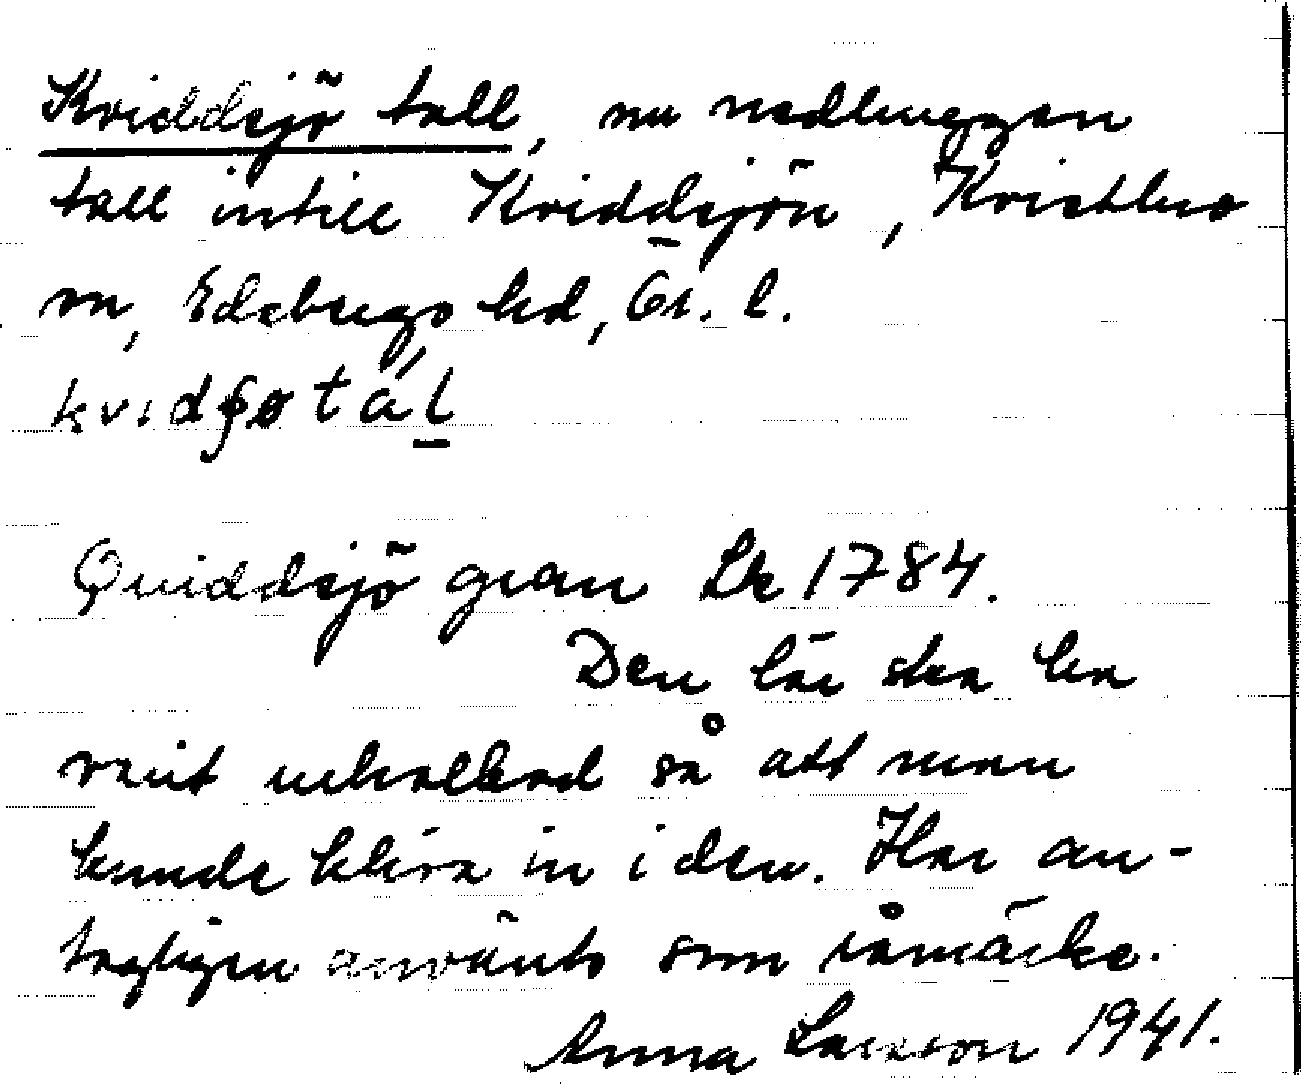 Kviddsjö tall, nu nedhuggen
tall intill Kviddsjön, Kvistbro
sn, Edsbergs hd, Ör. l.
kvidʂøtáḻ
Quiddsjö gran Lk 1784.
Den lär ska ha
varit urholkad så att man
kunde kliva in i den. Har an-
tagligen använts som råmärke.
Anna Larsson 1941.